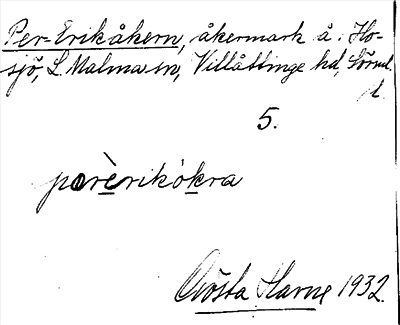 Per-Erikåkern, åkermark å. Ho-
sjö, L. Malma sn, Villåttinge hd, Sörml.
d.
5.
pärèrikòkra
Gösta Harne 1932.